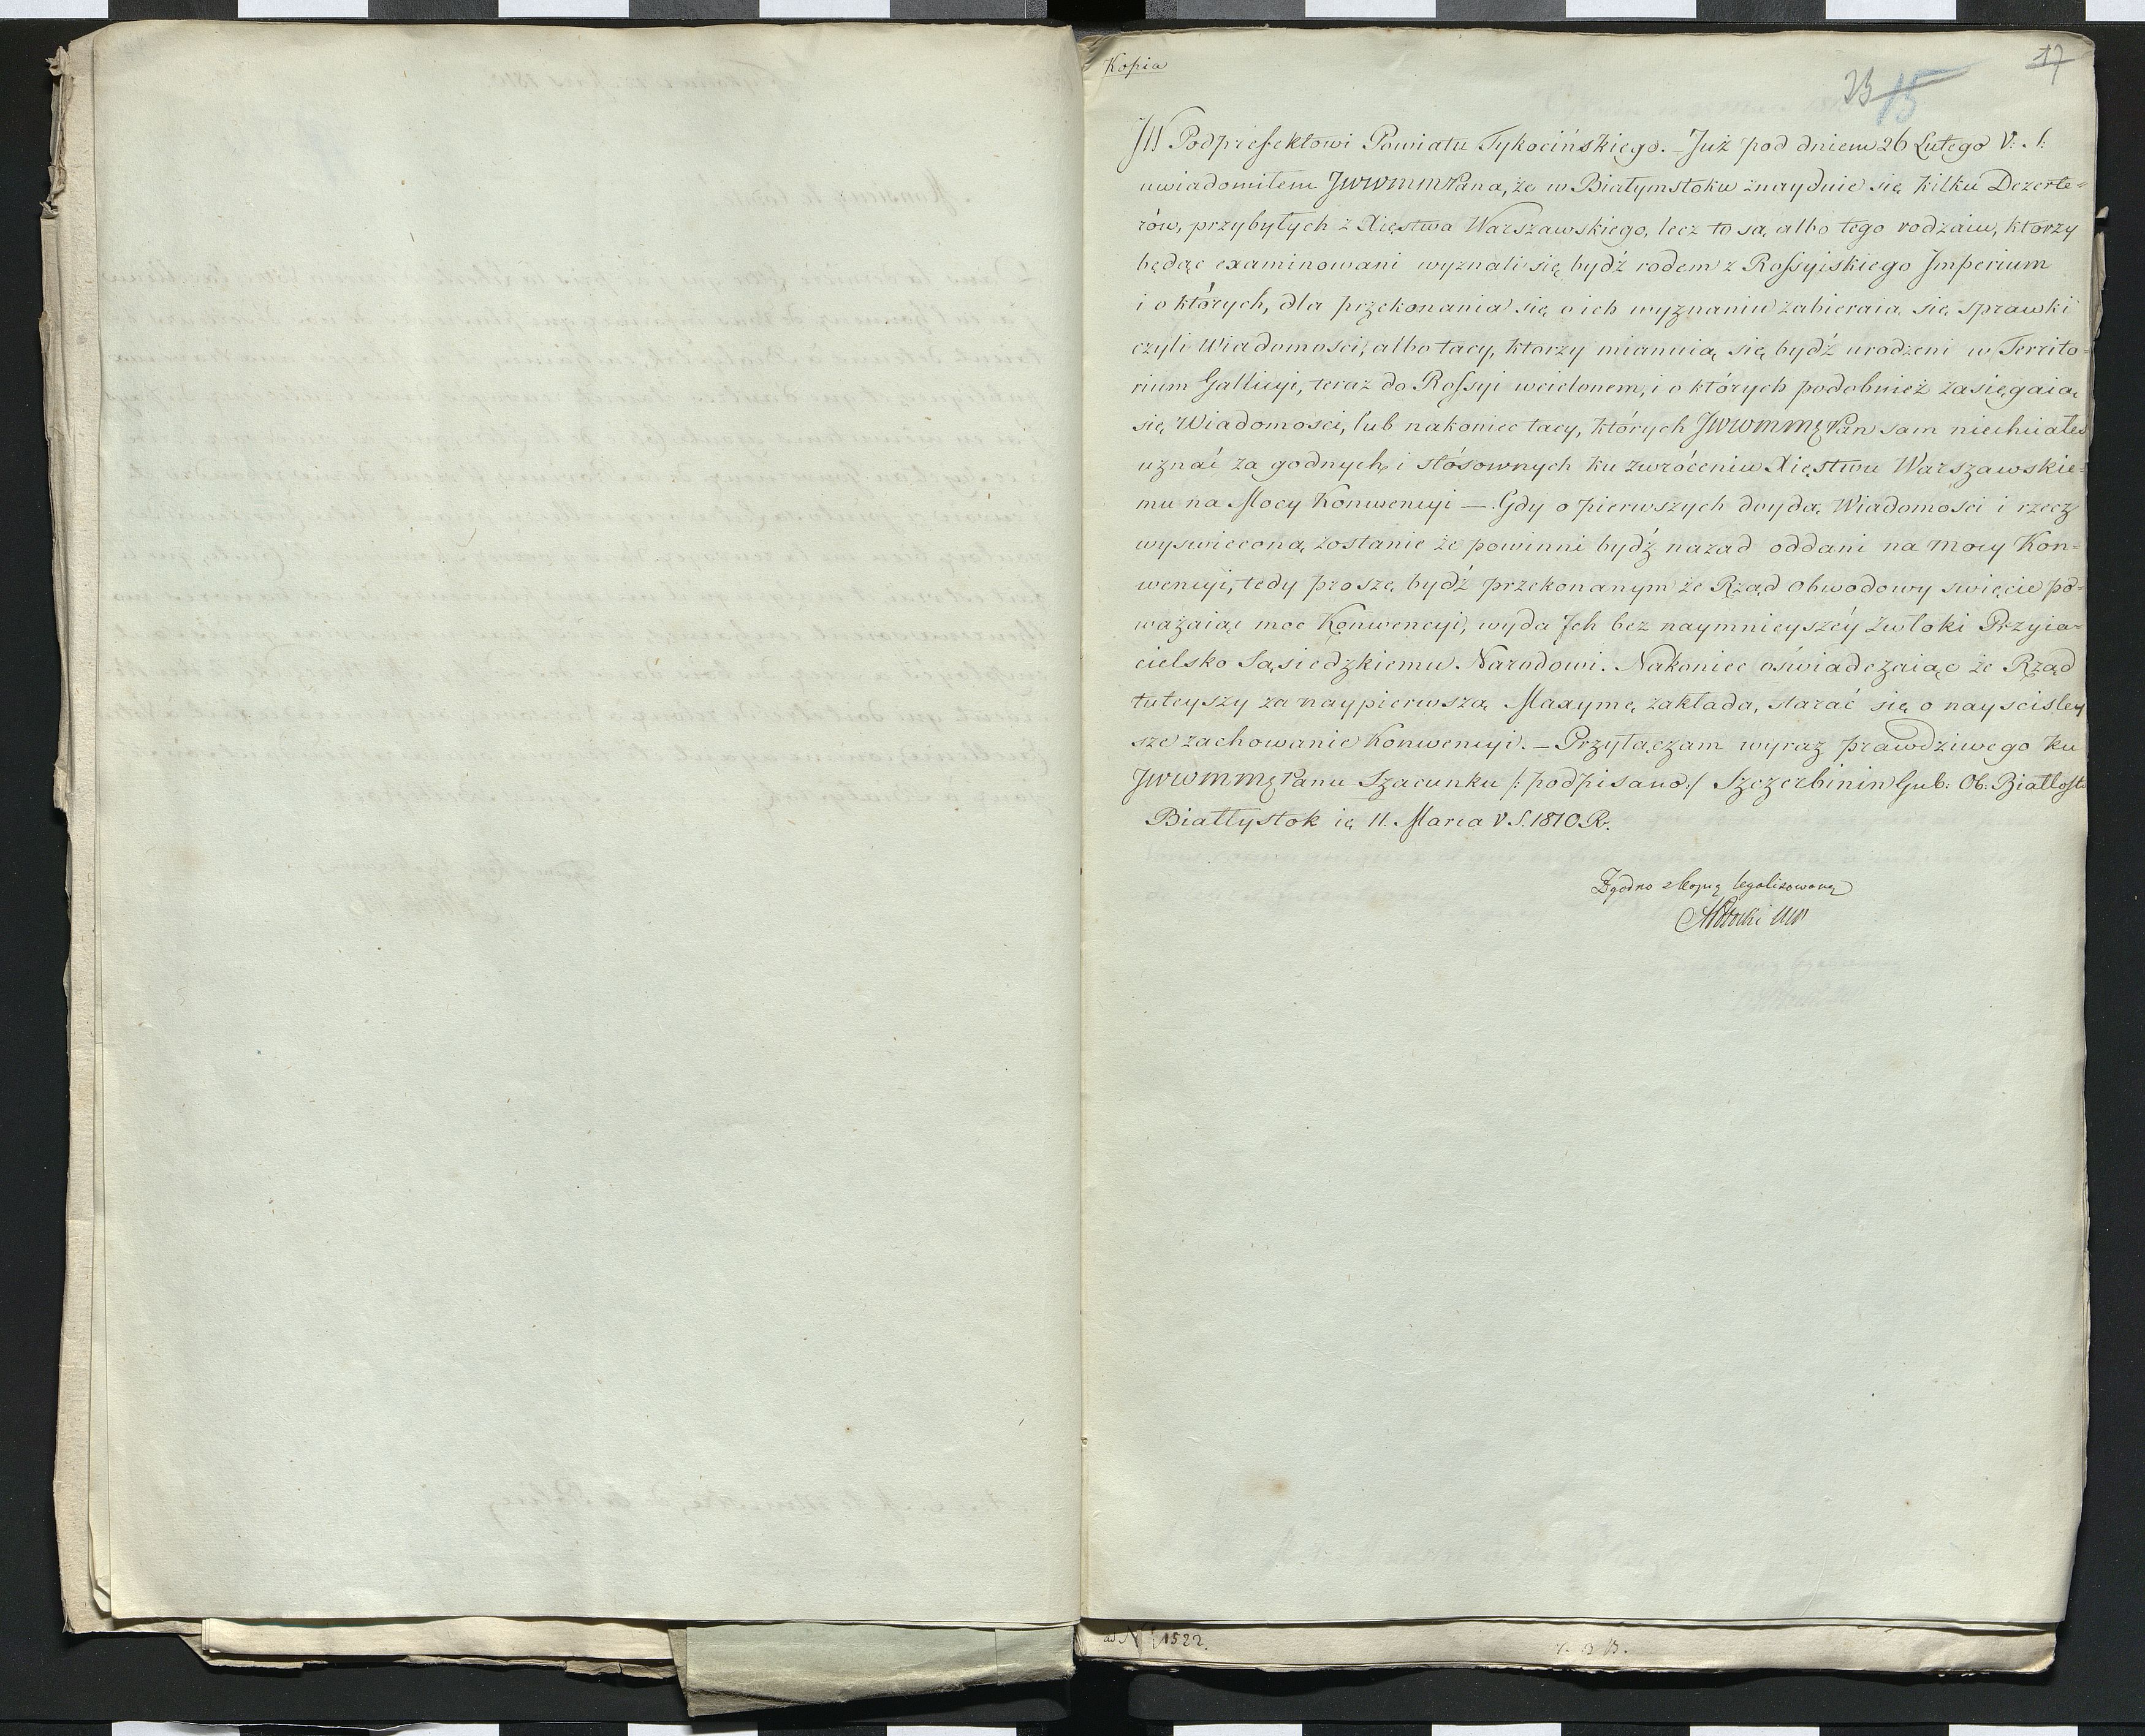 Kopia
17
23 15
JW Podprefektowi Powiatu Tykocińskiego. – Już pod dniem 26 Lutego V: S:
uwiadomiłem JWWmm Pana, że w Białymstoku znayduie się kilku Dezerte=
rów, przybyłych z Xięstwa Warszawskiego, lecz to są albo tego rodzaiu, ktorzy
będąc examinowani wyznali się bydź rodem z Rossyiskiego Imperium
i o których, dla przekonania się o ich wyznaniu zabieraią się sprawki
czyli Wiadomosci, albo tacy, ktorzy mianuią się bydź urodzeni w Territo=
rium Gallicyi, teraz do Rossyi wcielonem, i o których podobnież zasięgaią
się Wiadomosci, lub nakoniec tacy, których JWWmmg Pan sam niechciałeś
uznać za godnych, i stósownych ku zwróceniu Xięstwu Warszawskie=
mu na Mocy Konwencyi – Gdy o pierwszych doydą Wiadomosci i rzecz
wyswieconą zostanie że powinni bydź nazad oddani na mocy Kon=
wencyi, tedy proszę bydź przekonanym że Rząd Obwodowy swięcie po=
ważaiąc moc Konwencyi, wyda Ich bez naymnieyszéy zwłoki Przyia=
cielsko Sąsiedzkiemu Narodowi. Nakoniec oświadczaiąc że Rząd
tuteyszy za naypierwszą Maxymę zakłada, starać się o nayscisley
sze zachowanie Konwencyi. – Przyłączam wyraz prawdziwego ku
JWWmmg Panu Szacunku /: podpisano :/ Szczerbinin Gub: Ob: Białłosto
Białłystok ię 11. Marca V S. 1810 R.
Zgodno z kopią legalizowaną
ad N 1522.